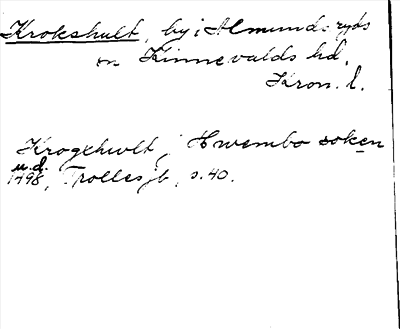 Krokshult, by i Almundsryds
sn Kinnevalds hd,
Kron. l.
Krogehwlt, j Hwembo soken
u.d.
1498, Trolles jb, s. 40.